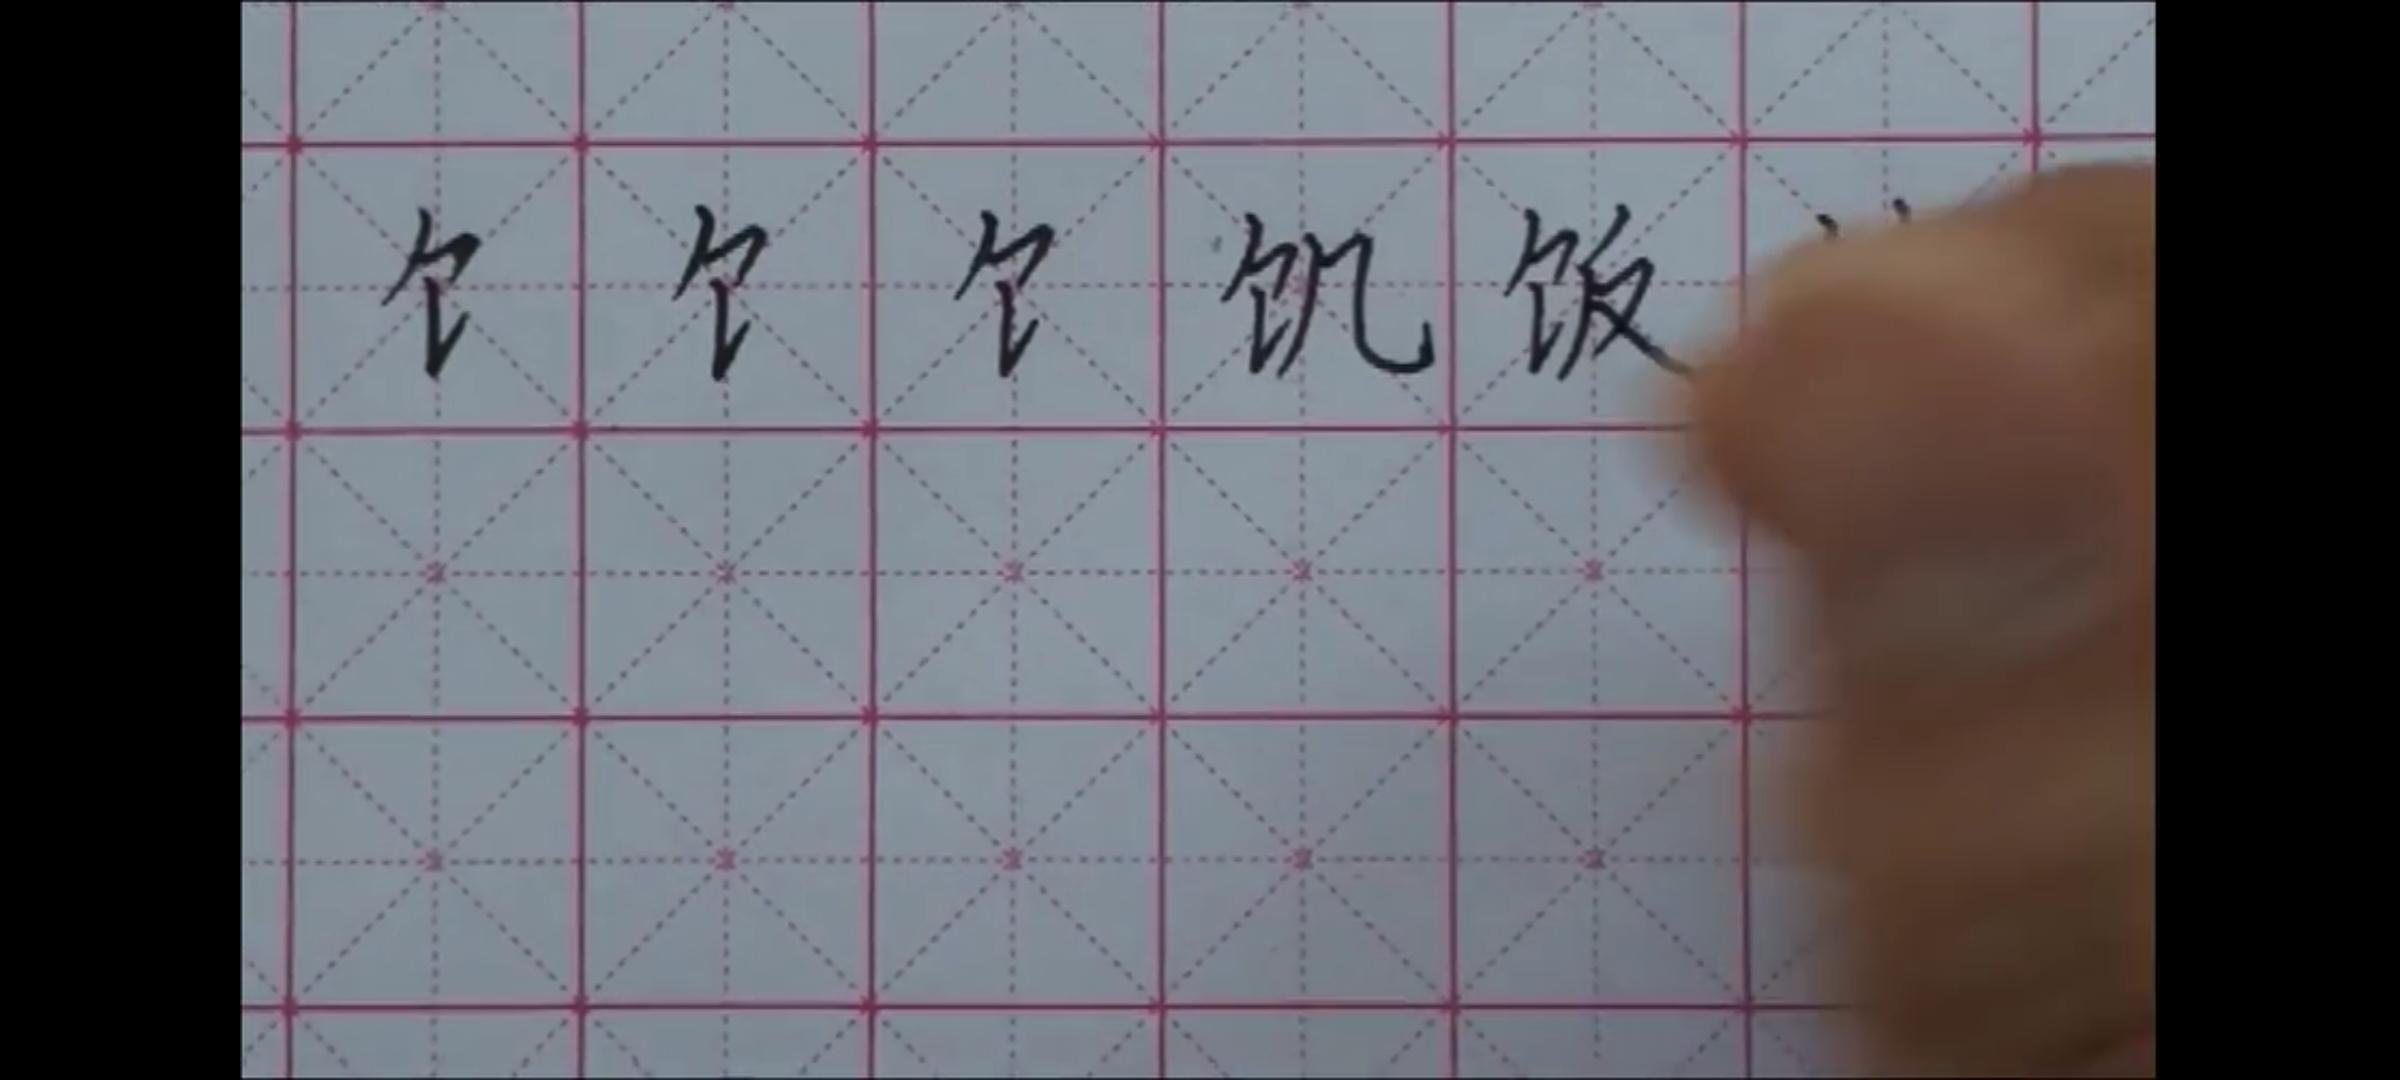 饣 饣 饣 饥 饭